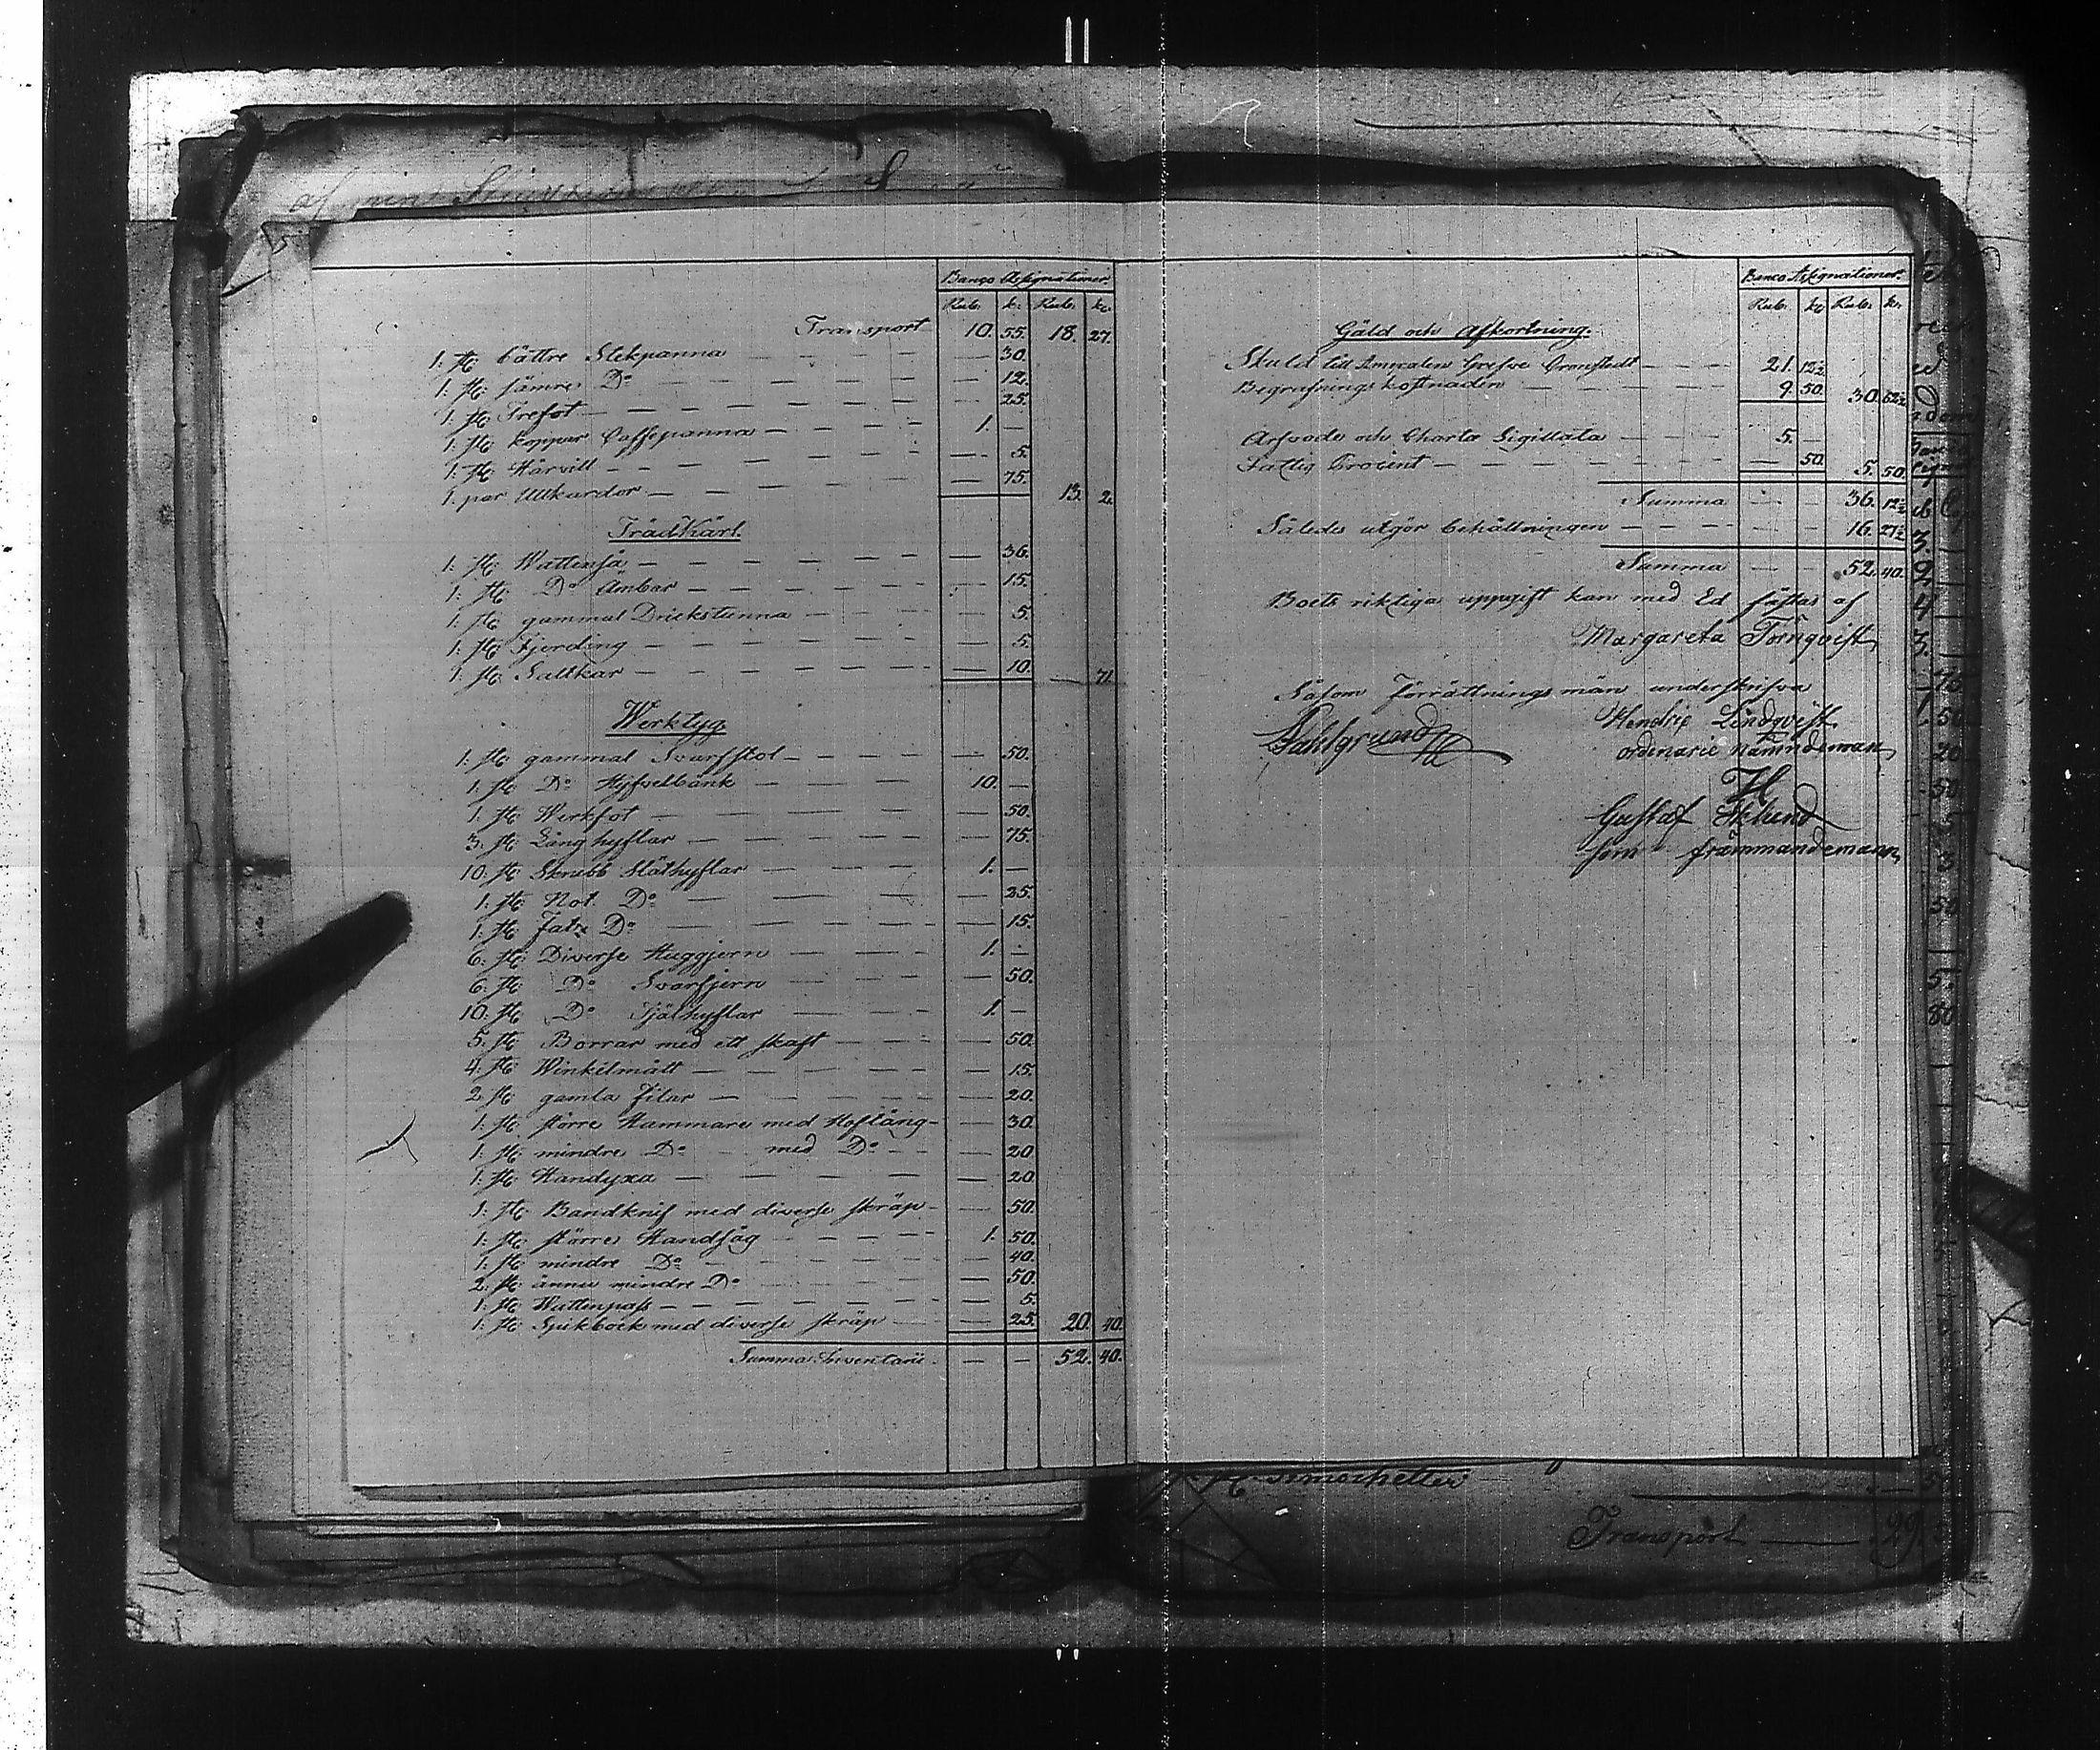 Banco Assignationer.
Rub. k. Rub. k.
Transport 10. 55. 18. 27.
1: st: bättre Stekpanna — 30.
1: st: sämre Do — 12.
1: st: Trefot — 25.
1: st: koppar Caffepanna 1. —
1: st: Härvill — 5.
1. par Ullkardor — 75. 13. 2.
TrädKärl.
1: st: Wattenså — 36.
1: st: Do Ämbar — 15.
1: st: gammal Drickstunna — 5.
1: st: Fjerding — 5.
1: st: Saltkar — 10. — 71.
Werktyg.
1: st: gammal Svarfstol — 50.
1: st: Do Hyfvelbänk 10. —
1: st: Werkfot — 50.
3: st: Långhyflar — 75.
10: st: Skrubb Släthyflar 1. —
1: st: Not Do — 25.
1: st: Do — 15.
6: st: Diverse Huggjern 1. —
6: st: Do Svarfjern — 50.
10: st: Do Kjälhyflar 1. —
5: st: Borrar med ett skaft — 50.
4: st: Winkelmått — 15.
2 st: gamla filar — 20.
1: st: större Hammare med Hoftång — 30.
1: st: mindre Do med Do — 20
1: st: Handyxa — 20.
1: st: Bandknif med diverse skräp — 50.
1: st: större Handsåg 1. 50.
1: st: mindre Do — 40.
2: st: ännu mindre Do — 50.
1: st: Wattenpass — 5.
1: st: Spikbock med diverse skräp — 25. 20. 40.
Summa Inventarie — — 52. 40.
Banco Assignationer.
Rub. k. Rub. k.
Gäld och Afkortning.
Skuld till Amiralen Grefve Cronstedt 21. 12½
Begrafnings kostnaden 9. 50. 30. 62½
Arfvode och Charta Sigillata 5. —
Fattig Procent — 50. 5. 50.
Summa — — 36. 12½
Således utgör behållningen — — 16. 27½
Summa — — 52. 40.
Boets riktiga uppgift kan med Ed fästas af
Margareta Törnqvist
Såsom Förrättnings män underskrifva
Dahlgrund
Hendric Lindqvist
ordenarie nämndeman
Gustaf Eklund
som främmandemann
Transport — 29.